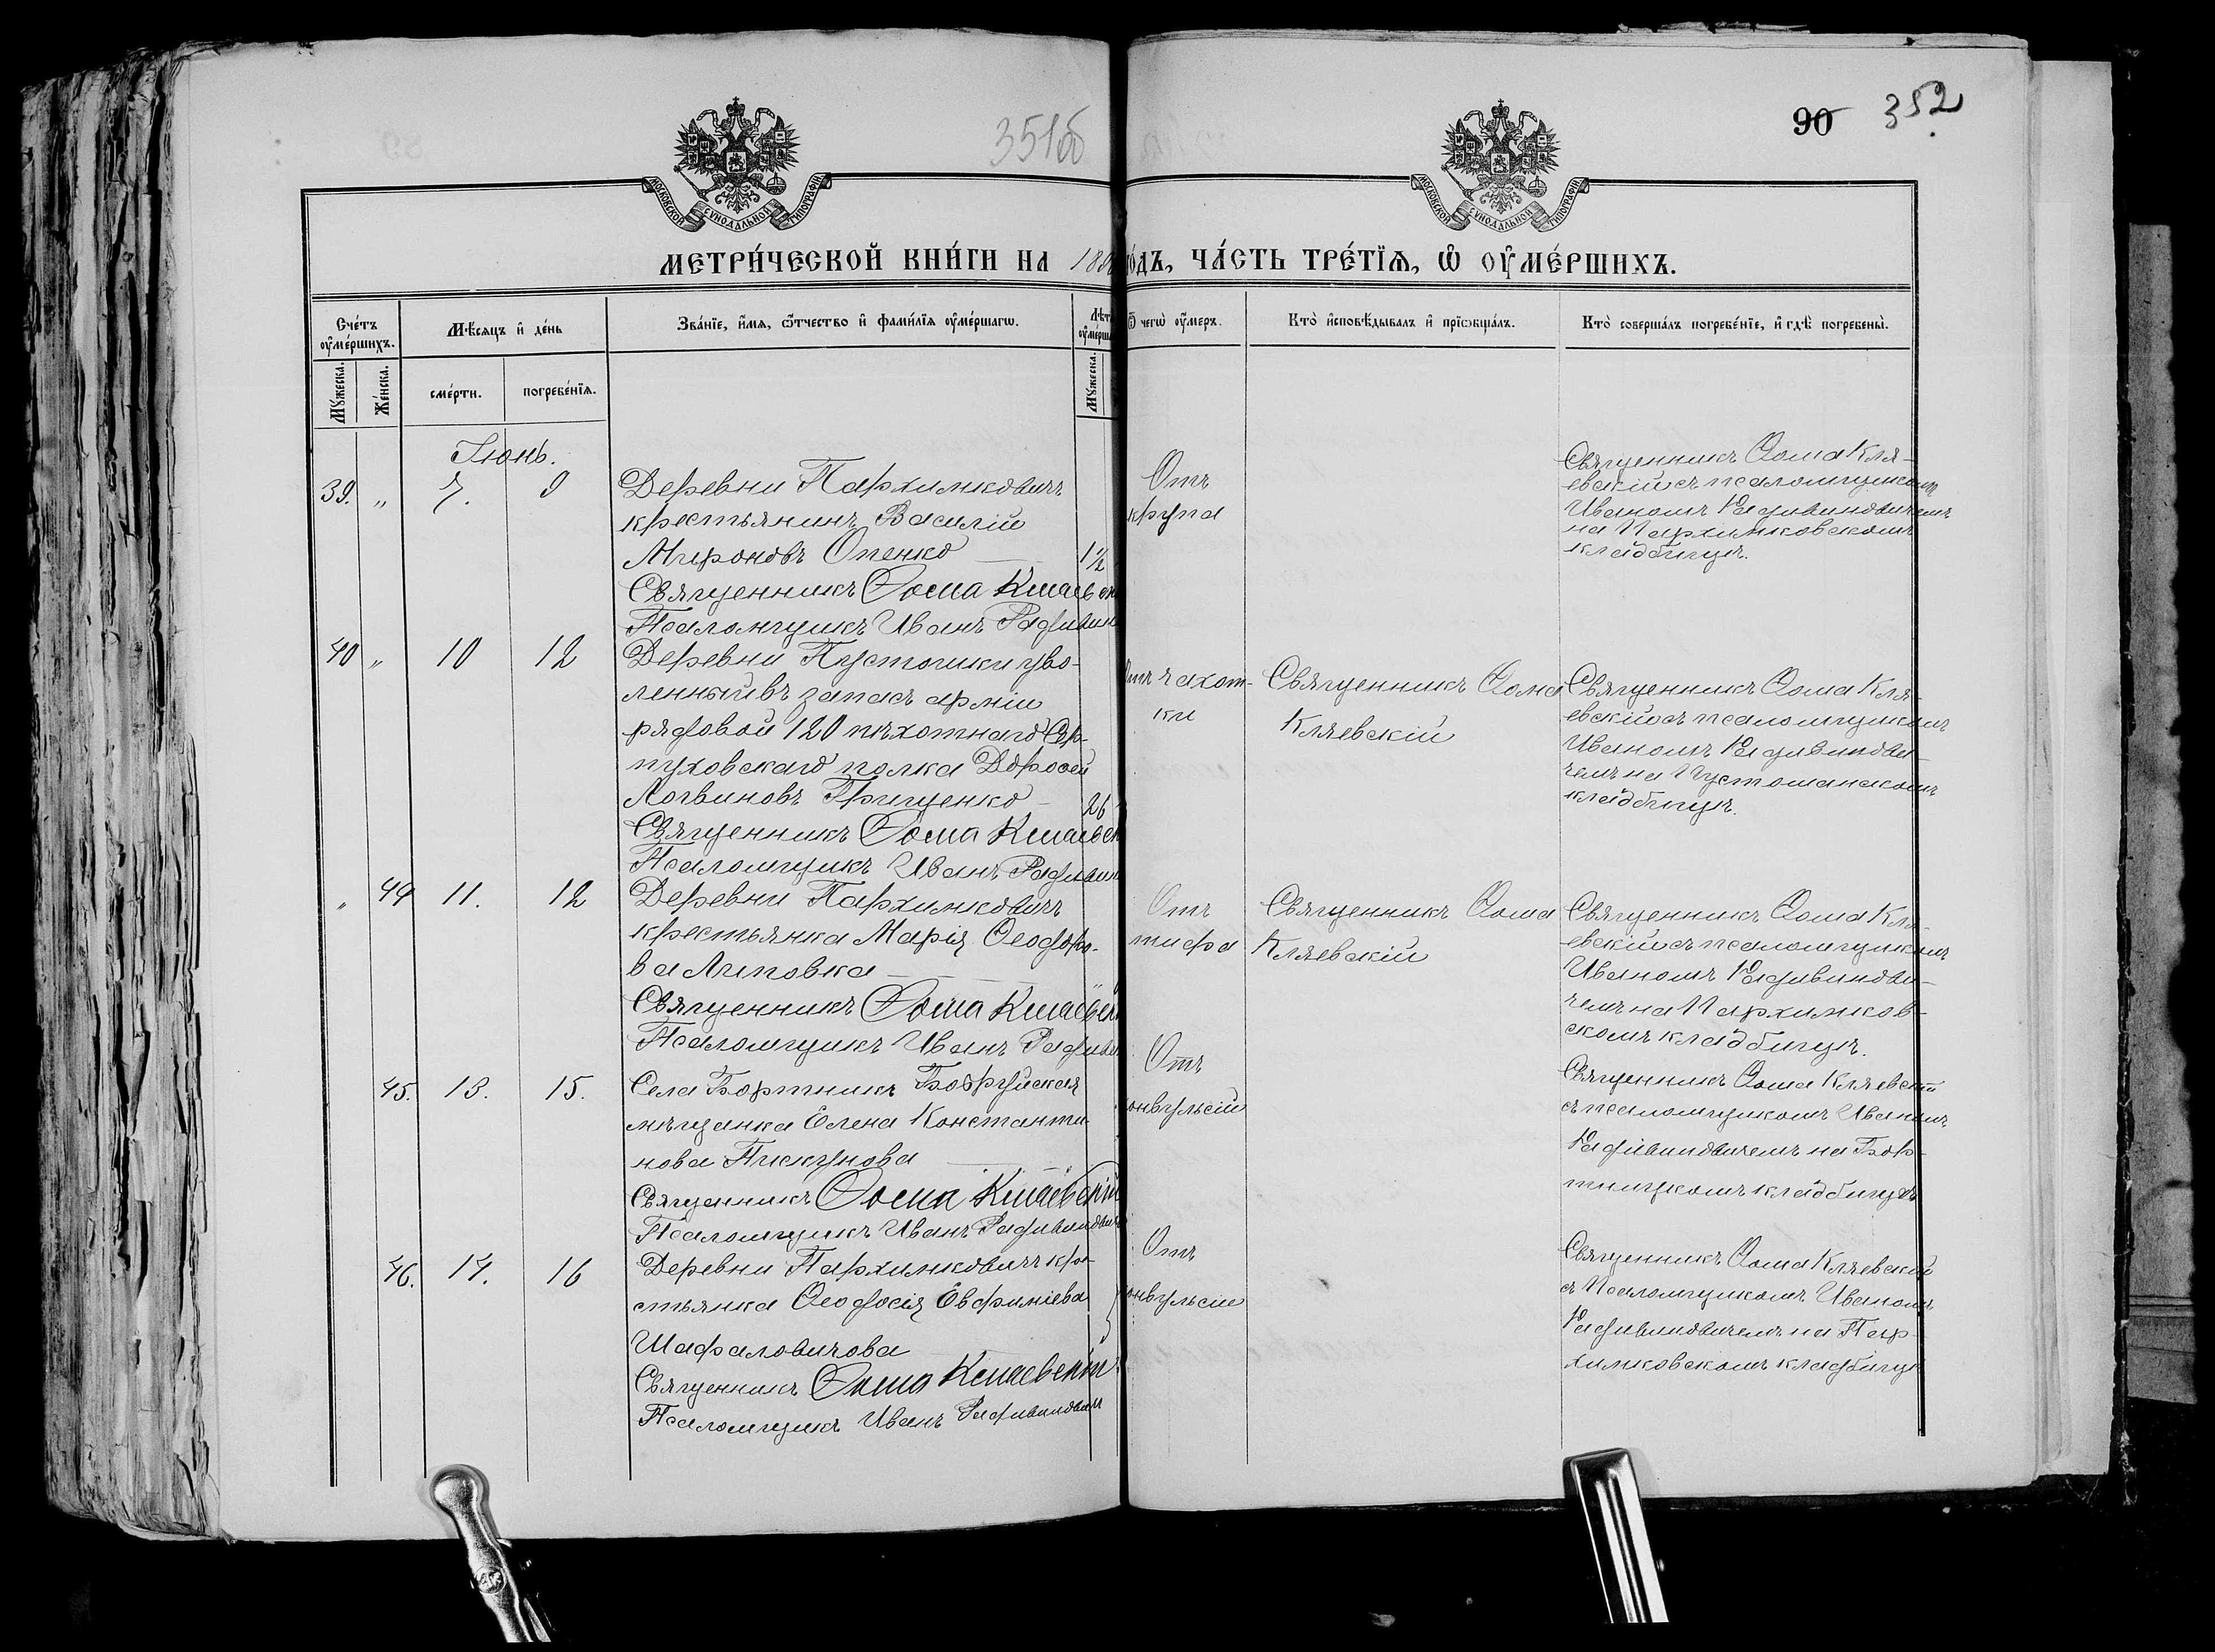 351об
90 352
МОСКОВСКОЙ СѴНОДАЛЬНОЙ ТИПОГРАФІИ
МОСКОВСКОЙ СѴНОДАЛЬНОЙ ТИПОГРАФІИ
МЕТРИ́ЧЕСКОЙ КНИ́ГИ НА 18
О́ДЪ, ЧА́СТЬ ТРЕ́ТЇѦ, Ѡ ОУ҆МЕ́РШИХЪ.
Сче́тъ оу҆ме́ршихъ.
Мѣ́сяцъ и҆ де́нь
Зва́нїе, и҆́мѧ, ѻ҆́тчество и҆ фамі́лїѧ оу҆ме́ршагѡ.
Мꙋ́жеска.
Же́нска.
сме́рти.
погребе́нїѧ.
Мꙋ́жеска.
Ѿ чегѡ̀ оу҆́меръ.
Кто̀ и҆сповѣ́дывалъ и҆ прїѡбща́лъ.
Кто̀ соверша́лъ погребе́нїе, и҆ гдѣ̀ погребены̀.
Іюнь.
39. " 7. 9
Деревни Пархимковичъ
крестьянинъ Василій
Мироновъ Опенко 1½
Священникъ Ѳома Кляевск
Псаломщикъ Иванъ Радивин
Отъ
крупа
Священникъ Ѳома Кля-
евскій съ псаломщикомъ
Иваномъ Радивиновичемъ
на Пархимковскомъ
кладбищѣ.
40 " 10 12
Деревни Пустошки уво-
ленный въ запасъ арміи
рядовой 120 пѣхотнаго Сер-
пуховскаго полка Дороѳей
Логвиновъ Грищенко 26
Священникъ Ѳома Кляевск
Псаломщикъ Иванъ Радивин
Отъ чахот-
ки
Священникъ Ѳома
Кляевскій
Священникъ Ѳома Кля-
евскій съ псаломщикомъ
Иваномъ Радивинови-
чемъ на Пустошанскомъ
кладбищѣ.
" 44 11. 12
Деревни Пархимковичъ
крестьянка Марія Ѳеодоро-
ва Липовка
Священникъ Ѳома Кляевск
Псаломщикъ Иванъ Радиви
Отъ
тифа
Священникъ Ѳома
Кляевскій
Священникъ Ѳома Кля-
евскій съ псаломщикомъ
Иваномъ Радивинови-
чемъ на Пархимков-
скомъ кладбищѣ.
45. 13. 15.
Села Бортникъ Бобруйская
мѣщанка Елена Константи-
нова Пиккунова
Священникъ Ѳома Кляевскій
Псаломщикъ Иванъ Радивинович
Отъ
конвульсій
Священникъ Ѳома Кляевскій
съ псаломщикомъ Иваномъ
Радивиновичемъ на Бор-
тницкомъ кладбищѣ
46. 14. 16
Деревни Пархимковичъ кре-
стьянка Ѳеодосія Евфиміева
Шафаловичова
Священникъ Ѳома Кляевскій
Псаломщикъ Иванъ Радивинович
Отъ
конвульсіи
Священникъ Ѳома Кляевскій
съ Псаломщикомъ Иваномъ
Радивиновичемъ на Пар-
химковскомъ кладбищѣ